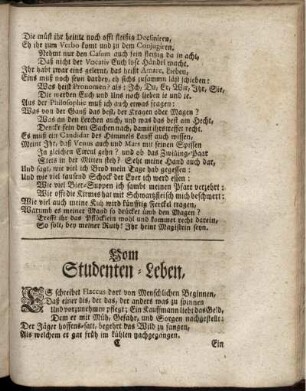 Die müst ihr heinte noch offt fleißig Declinieren,
Eh ihr zum Verbo kömt und zu dem Conjugiren,
Nehmt nur den Casum auch fein fleißig da in acht,
Daß nicht der Vocativ Euch böse Händel macht.
Ihr habt zwar eins gelernt, das heißt Amare, lieben,
Eins muß noch seyn darbey, eh sichs zusammen läst schieben:
Was heist Pronomen? als: Ich, Du, Er, Wir, Ihr, Sie,
Die werden Euch und Uns noch lieben je und je.
Aus der Philosophie muß ich auch etwas fragen:
Was von der Ganß das best, der Kragen oder Magen?
Was an den Hechten auch, und was das best am Hecht,
Denckt fein den Sachen nach, damit ihrs treffet recht.
Es muß ein Candidat des Himmels Lauff auch wissen,
Meint Ihr, daß Venus auch und Mars mit seinen Spiessen
In gleichen Circul gehn? und ob das Zwilling-Paar
Stets in der Mitten steh? Seht meine Hand auch dar,
Und sagt, wie viel ich Brod mein Tage hab gegessen:
Und wie viel tausend Schock der Eyer ich werd essen:
Wie viel Bier-Suppen ich sambt meinen Pfarr verzehrt:
Wie offt die Kirmes hat mit Schweinfleisch mich beschwert:
Wie viel auch meine Kuh wird künfftig Ferckel tragen,
Warumb es meiner Magd so drücket umb den Magen?
Trefft ihr das Pflöcklein wohl und kommet recht darein,
So solt, bey meiner Ruth! Ihr heint Magistein seyn.
Vom
Studenten-Leben,
ES schreibet Flaccus dort von Menschlichen Beginnen,
Daß einer dis, der das, der anders was zu spinnen
Und vorzunehmen pflegt; Ein Kauffmann liebt das Geld,
Dem er mit Müh, Gefahr, und Sorgen nachgestellt:
Der Jäger hoffens-satt, begehrt das Wild zu fangen,
Als welchem er gar früh im kühlen nachgegangen.
C
Ein